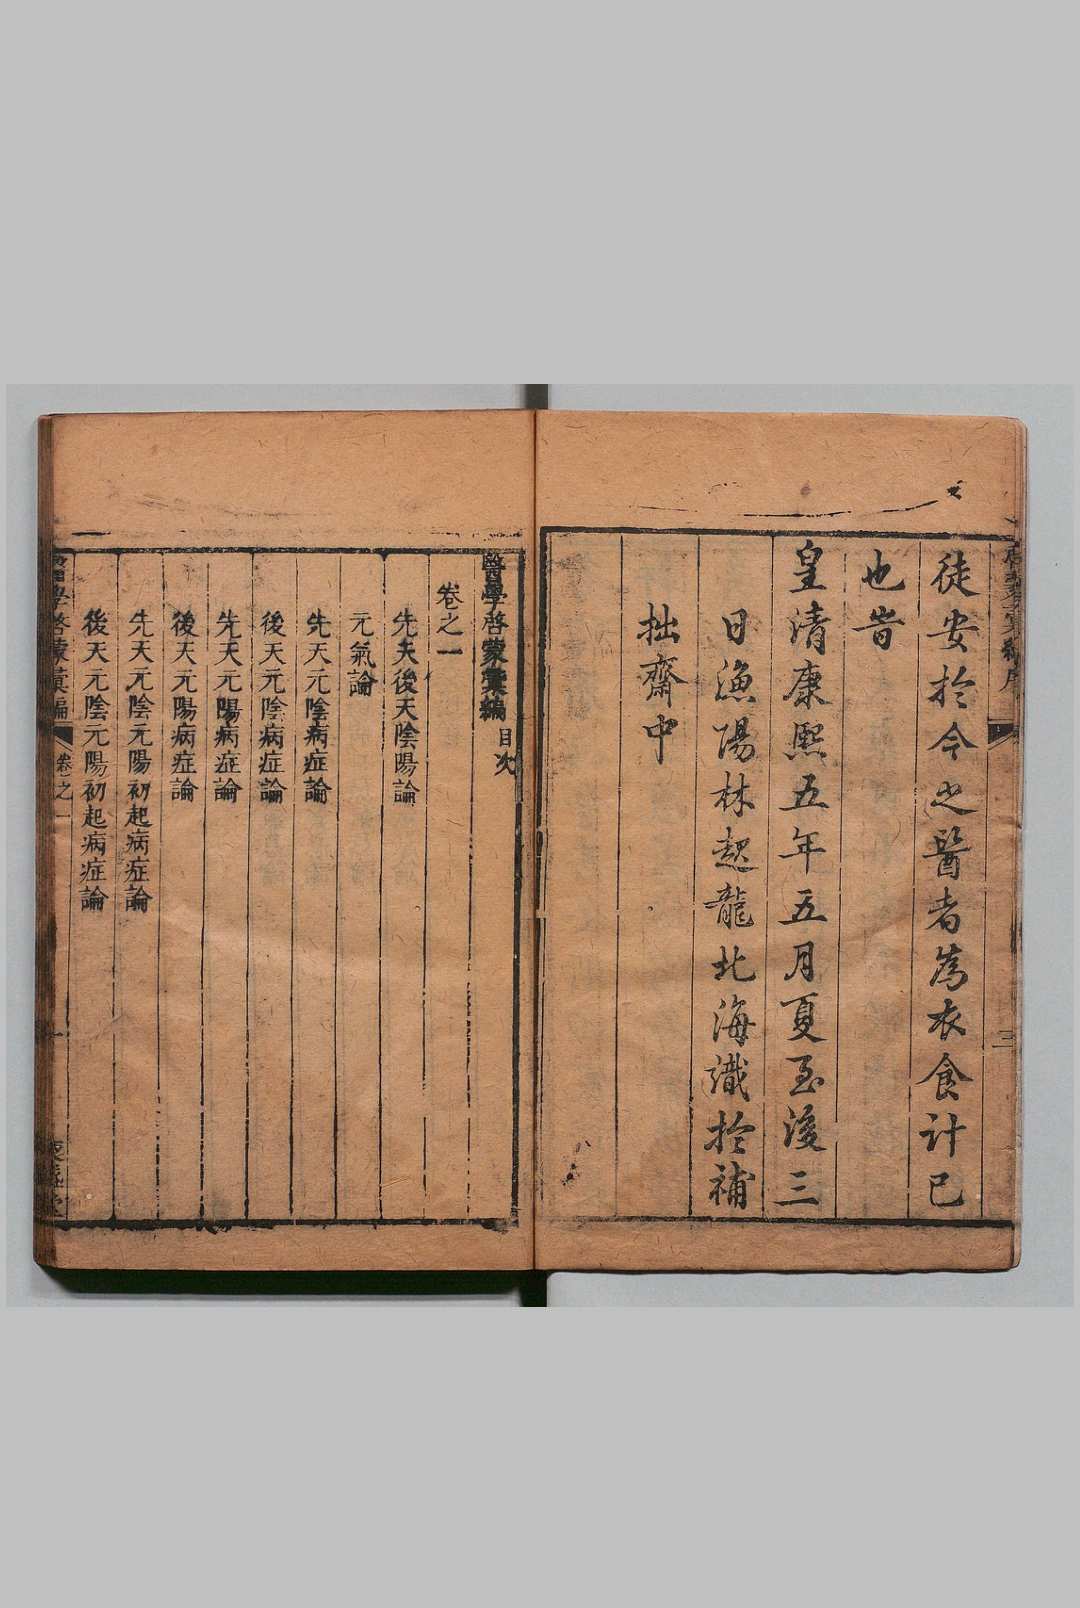 徒安於今之醫者為衣食計已
也旹
皇清康熙五年五月夏至後三
日漁陽林起龍北海識於補
拙齋中
醫學啓蒙彙編目次
卷之一
先天後天陰陽論
元氣論
先天元陰病症論
後天元陰病症論
先天元陽病症論
後天元陽病症論
先天元陰元陽初起病症論
後天元陰元陽初起病症論
卷之一